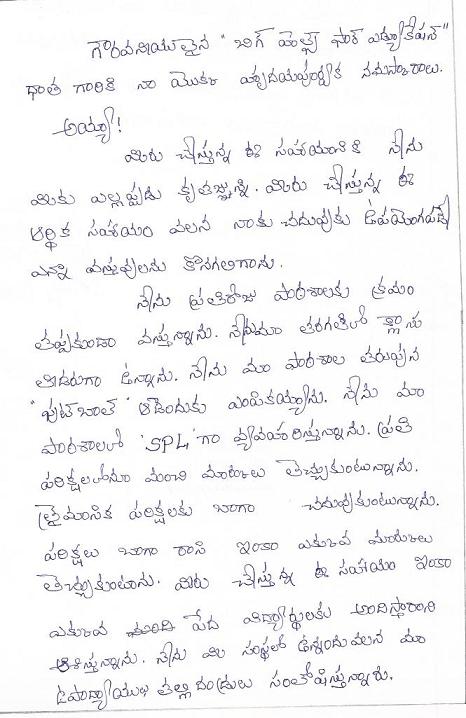 గౌరవనీయులైన "బిగ్ హెల్ప్ ఫార్ ఎడ్యుకేషన్"
ధాత గారికి నా యొక్క హృదయపూర్వక నమస్కారాలు.
అయ్యా!
మీరు చేస్తున్న ఈ సహాయానికి నేను
మీకు ఎల్లప్పుడు కృతజ్ఞున్ని. మీరు చేస్తున్న ఈ
ఆర్థిక సహాయం వలన నాకు చదువుకు ఉపయోగపడే
ఎన్నో వస్తువులను కొనగలిగాను.
నేను ప్రతిరోజు పాఠశాలకు క్రమం
తప్పకుండా వస్తున్నాను. నేను మా తరగతిలో క్లాసు
లీడరుగా ఉన్నాను. నేను మా పాఠశాల తరుపున
"ఫుట్‌బాల్" ఆడేందుకు ఎంపికయ్యాను. నేను మా
పాఠశాలలో 'SPL' గా వ్యవహరిస్తున్నాను. ప్రతి
పరీక్షలలోనూ మంచి మార్కులు తెచ్చుకుంటున్నాను.
త్రైమాసిక పరీక్షలకు బాగా చదువుకుంటున్నాను.
పరీక్షలు బాగా రాసి ఇంకా ఎక్కువ మార్కులు
తెచ్చుకుంటాను. మీరు చేస్తున్న ఈ సహాయం ఇంకా
ఎక్కువ మంది పేద విద్యార్థులకు అందిస్తారని
ఆశిస్తున్నాను. నేను మీ సంస్థలో ఉన్నందువలన మా
ఉపాధ్యాయులు తల్లిదండ్రులు సంతోషిస్తున్నారు.